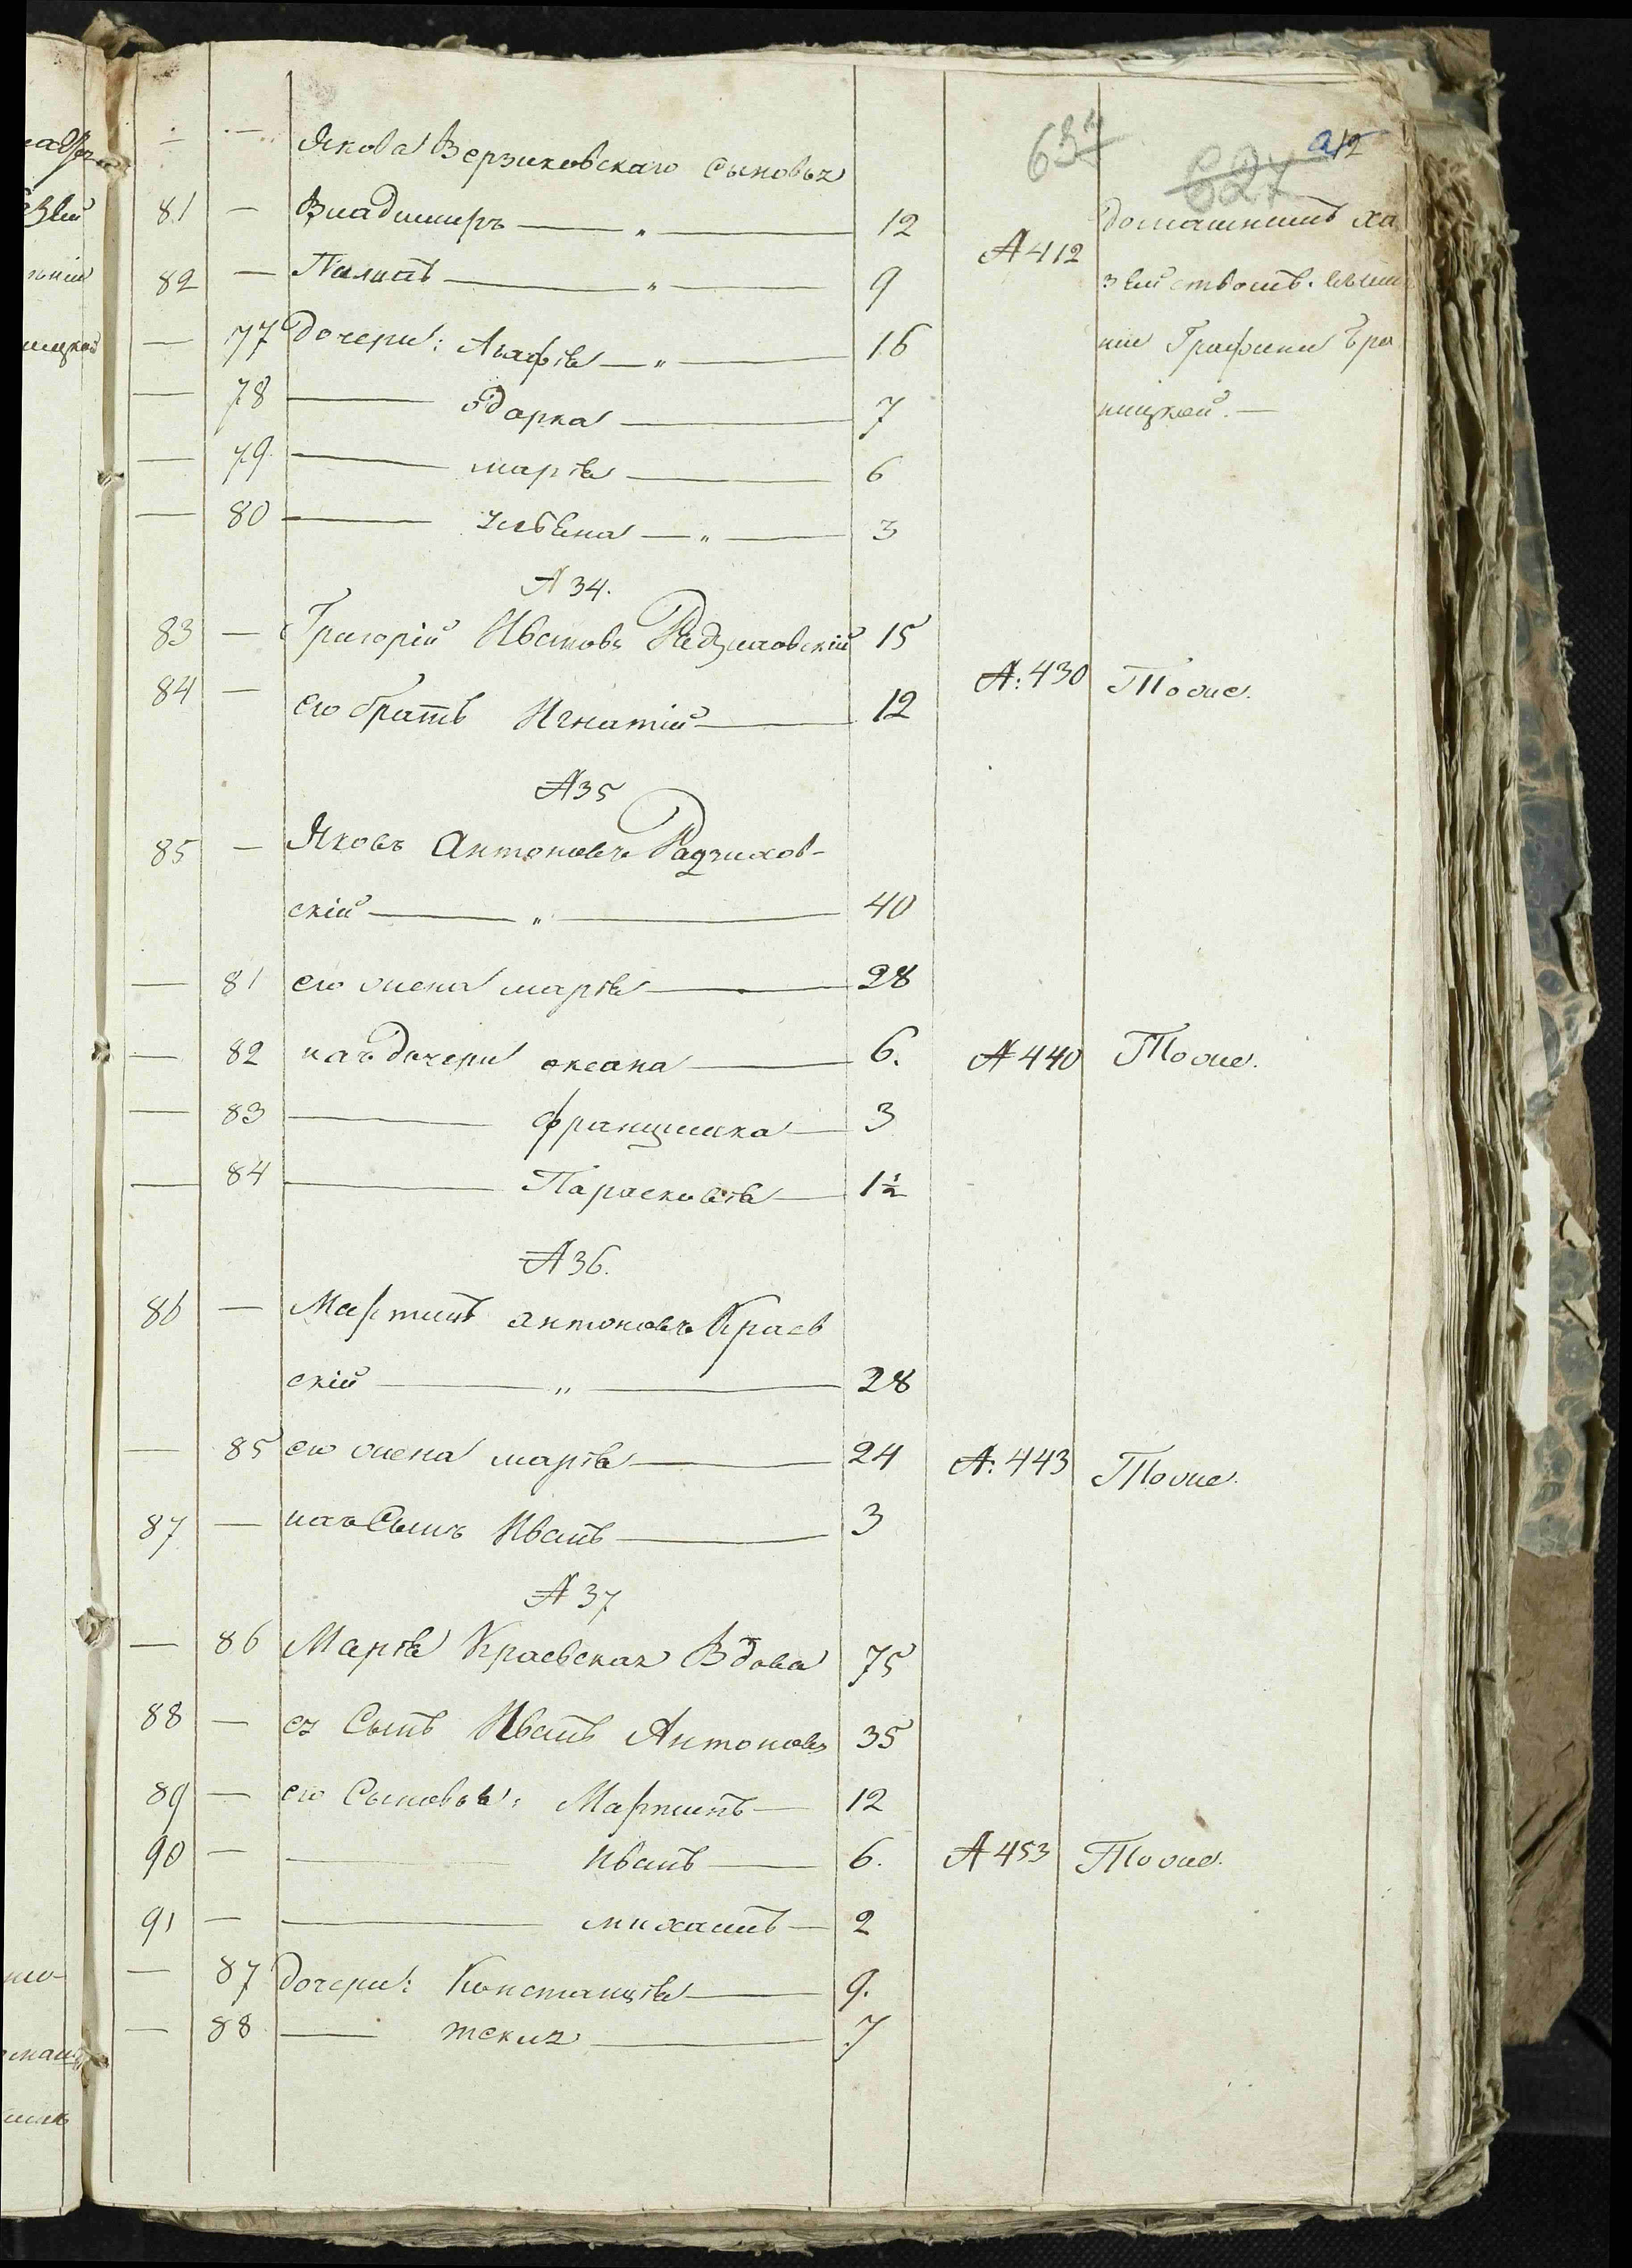 634
627
212
— — Якова Верзиковскаго сыновья
81 — Владимиръ — „ — 12 № 412 домашнимъ хо
82 — Пилипъ — „ — 9 зяйствомъ. въ имѣ
— 77 Дочери: Агафія — „ — 16 ніи Графини Бра
— 78 — Одарка — 7 ницкой. —
— 79 — марія — 6
— 80 — — „ — 3
№ 34.
83 — Григорій Ивановъ Радзиховскій 15
84 — его братъ Игнатій — 12 №: 430 Тоже.
№ 35
85 — Яковъ Антоновъ Радзихов-
скій — „ — 40
— 81 его жена марія — 28
— 82 ихъ дочери оксана — 6. № 440 Тоже.
— 83 — францишка — 3
— 84 — Парасковія — 1½
№ 36.
86 — Мартинъ антоновъ Краев
скій — „ — 28
— 85 его жена марія — 24 №: 443 Тоже.
87 — ихъ Сынъ Иванъ — 3
№ 37
— 86 Марія Краевская Вдова 75
88 — ея Сынъ Иванъ Антоновъ 35
89 — его Сыновья: Мартинъ — 12
90 — — Иванъ — 6. № 453 Тоже.
91 — — михаилъ — 2
— 87 Дочери: Констанція — 9.
— 88 — текля — 7